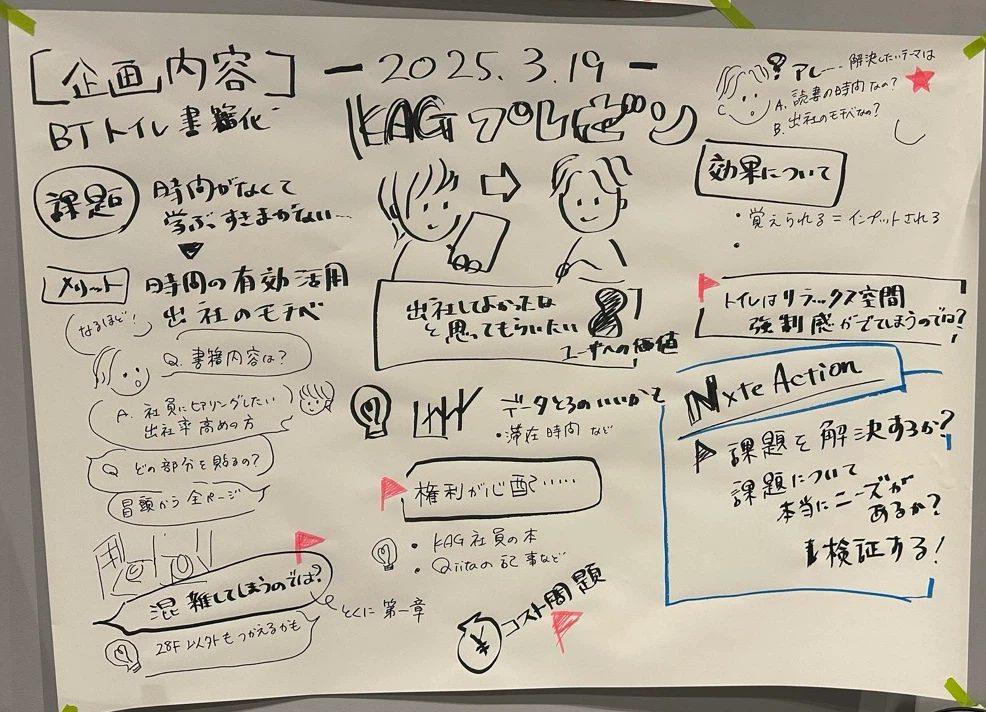 [企画内容]
BTトイレ書籍化
課題
時間がなくて
学ぶすきまがない…
メリット
時間の有効活用
出社のモチベ
なるほど!
Q. 書籍内容は?
A. 社員にヒアリングしたい
出社率高めの方
Q どの部分を貼るの?
冒頭から全ページ
混雑してしまうのでは?
28F以外もつかえるかも
とくに第一章
- 2025.3.19 -
KAGプレゼン
出社してよかったな
と思ってもらいたい
ユーザへの価値
データとるのいいかも
・滞在時間 など
権利が心配……
・KAG社員の本
・Qiitaの記事など
¥
コスト問題
? アレ… 解決したいテーマは
A. 読書の時間なの?
B. 出社のモチベなの?
効果について
・覚えられる = インプットされる
・
トイレはリラックス空間
強制感がでてしまうのでは?
Nxte Action
課題を解決するか?
課題について
本当にニーズが
あるか?
検証する!